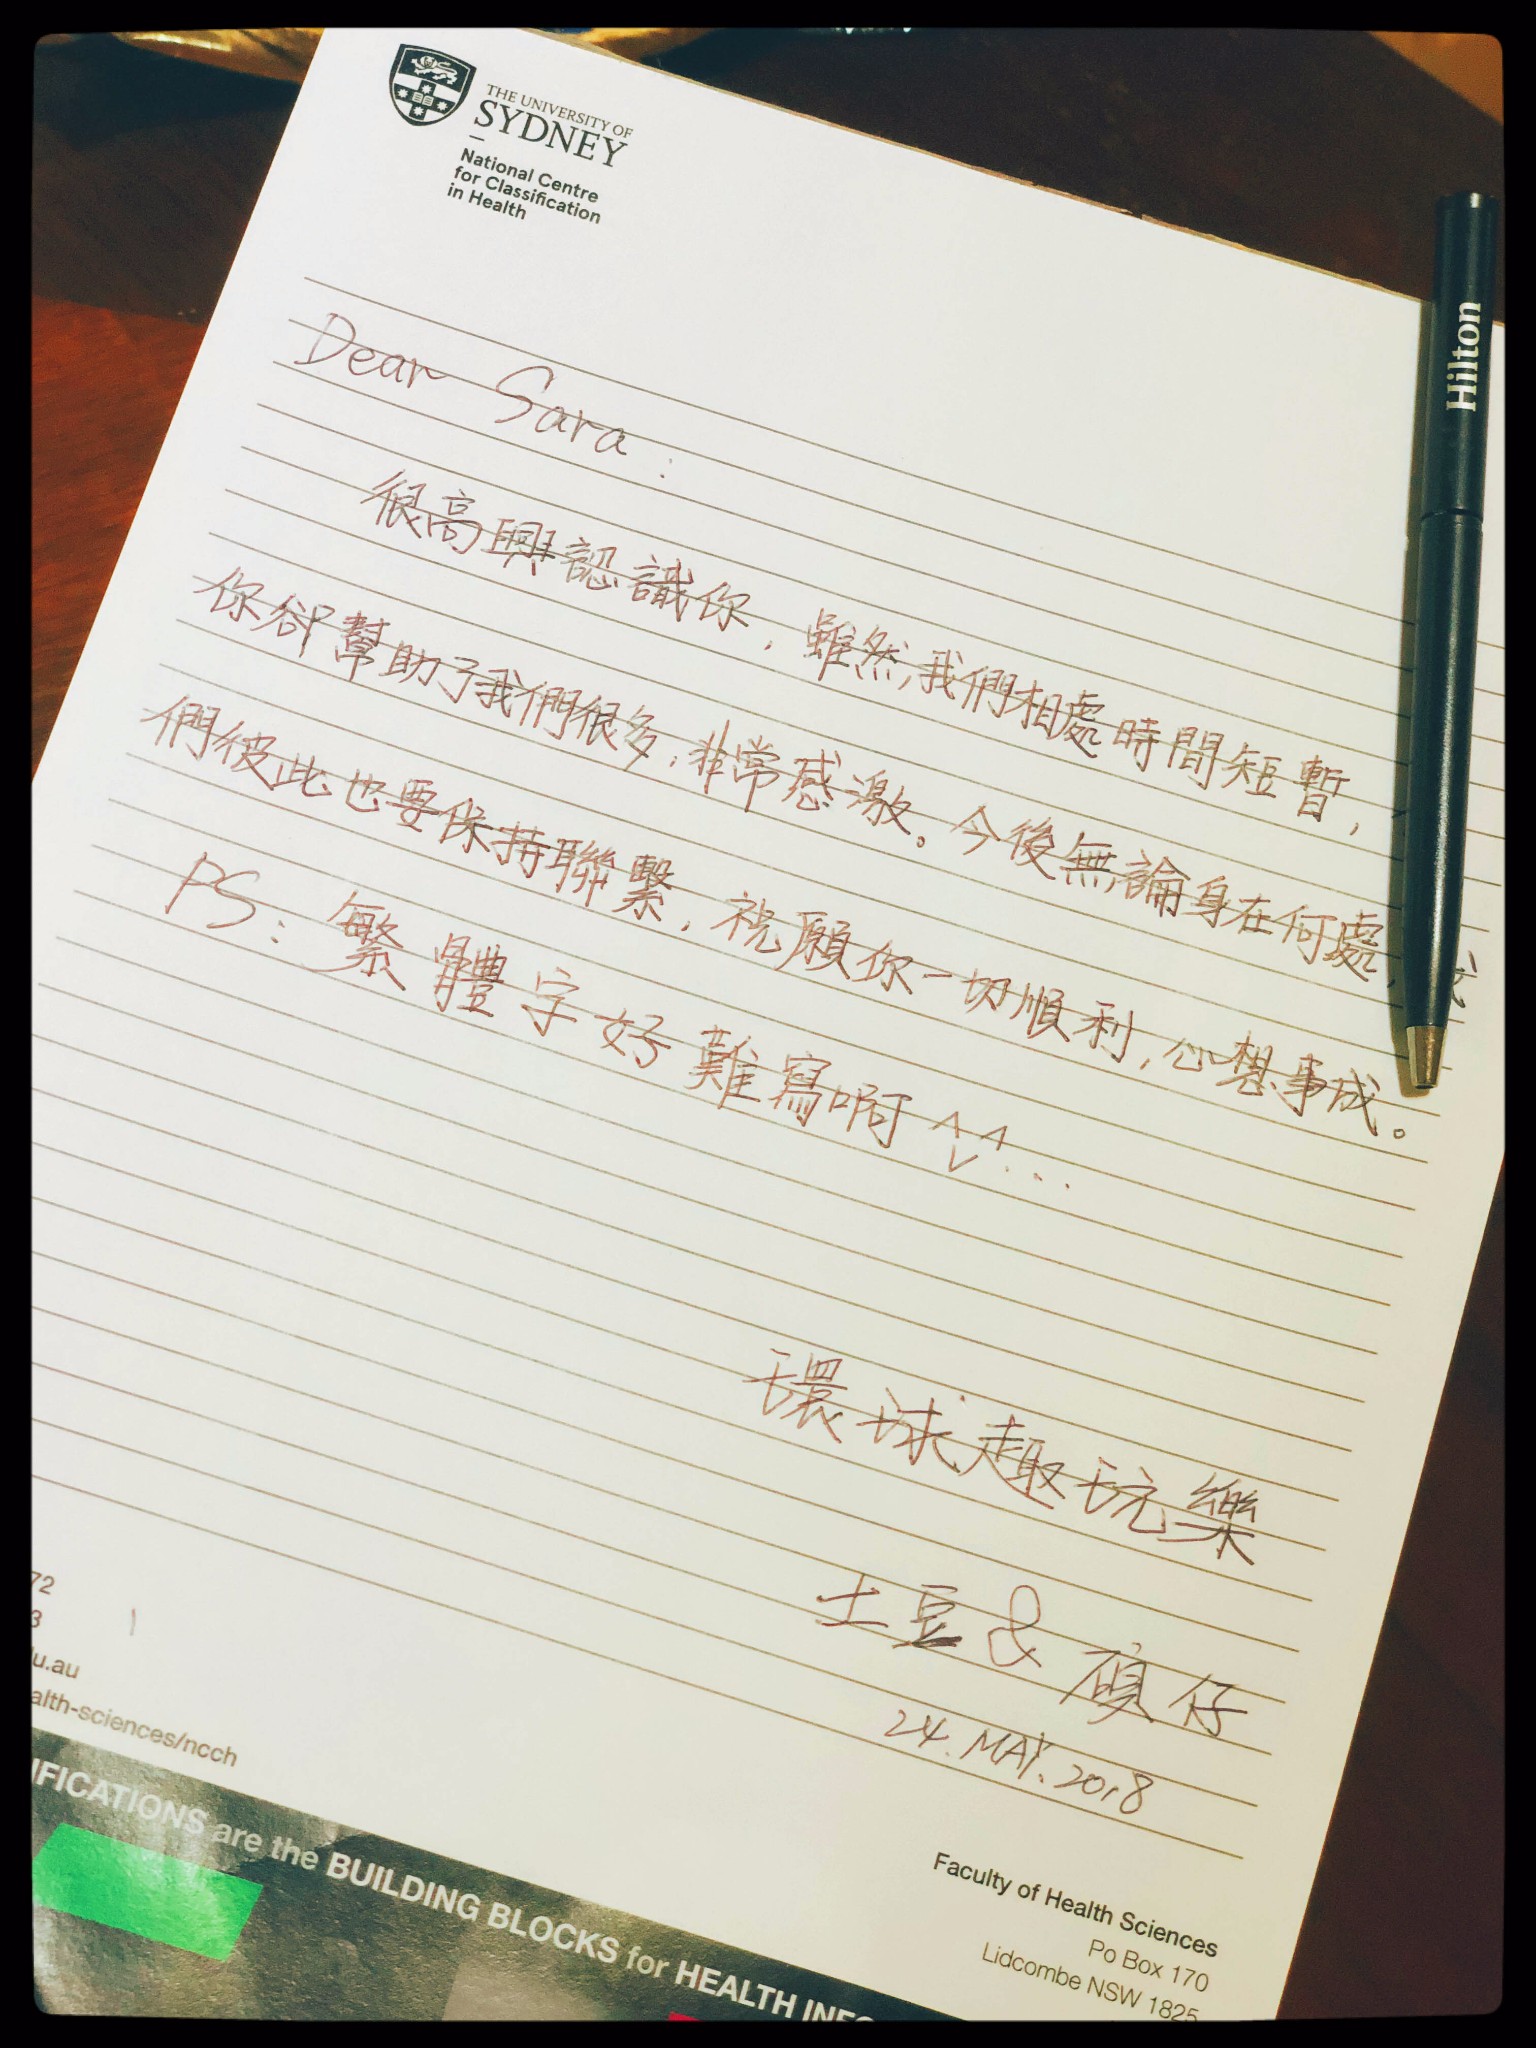 THE UNIVERSITY OF
SYDNEY
National Centre
for Classification
in Health
Hilton
Dear Sara:
很高興認識你,雖然,我們相處時間短暫,
你卻幫助了我們很多,非常感激。今後無論身在何處,
們彼此也要保持聯繫,祝願你一切順利,心想事成。
PS:繁體字好難寫啊^v^...
環球趣玩樂
土豆&碩仔
24.MAY.2018
72
3
u.au
alth-sciences/ncch
IFICATIONS are the BUILDING BLOCKS for HEALTH INFO
Faculty of Health Sciences
Po Box 170
Lidcombe NSW 1825